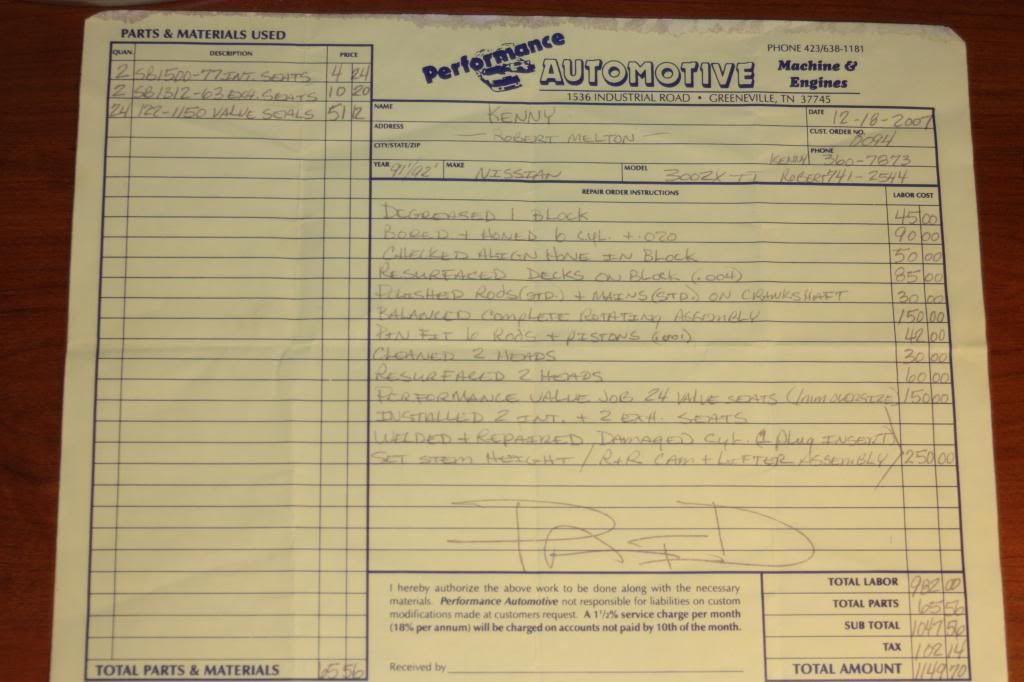 PARTS & MATERIALS USED
QUAN. DESCRIPTION PRICE
2 SB1500-77 INT. SEATS 4 24
2 SB1312-63 EXH. SEATS 10 20
24 122-1150 VALVE SEALS 51 12
TOTAL PARTS & MATERIALS 65 56
Performance
AUTOMOTIVE
1536 INDUSTRIAL ROAD • GREENEVILLE, TN 37745
PHONE 423/638-1181
Machine &
Engines
NAME KENNY DATE 12-18-2007
ADDRESS ROBERT MELTON CUST. ORDER NO. 0094
CITY/STATE/ZIP PHONE KENNY 360-7873
YEAR 91'/92' MAKE NISSIAN MODEL 300ZX-TT ROBERT 741-2544
REPAIR ORDER INSTRUCTIONS LABOR COST
DEGREASED 1 BLOCK 45 00
BORED + HONED 6 CYL. +.020 90 00
CHECKED ALIGN HONE IN BLOCK 50 00
RESURFACED DECKS ON BLOCK (.004) 85 00
POLISHED RODS (STD.) + MAINS (STD.) ON CRANKSHAFT 30 00
BALANCED COMPLETE ROTATING ASSEMBLY 150 00
PIN FIT 6 RODS + PISTONS (.001) 42 00
CLEANED 2 HEADS 30 00
RESURFACED 2 HEADS 60 00
PERFORMANCE VALVE JOB 24 VALVE SEATS (1mm OVERSIZE) 150 00
INSTALLED 2 INT. + 2 EXH. SEATS
WELDED + REPAIRED DAMAGED CYL. (1 PLUG INSERT)
SET STEM HEIGHT / R+R CAM + LIFTER ASSEMBLY 250 00
PAID
I hereby authorize the above work to be done along with the necessary
materials. Performance Automotive not responsible for liabilities on custom
modifications made at customers request. A 1½% service charge per month
(18% per annum) will be charged on accounts not paid by 10th of the month.
Received by
TOTAL LABOR 982 00
TOTAL PARTS 65 56
SUB TOTAL 1047 56
TAX 102 14
TOTAL AMOUNT 1149 70